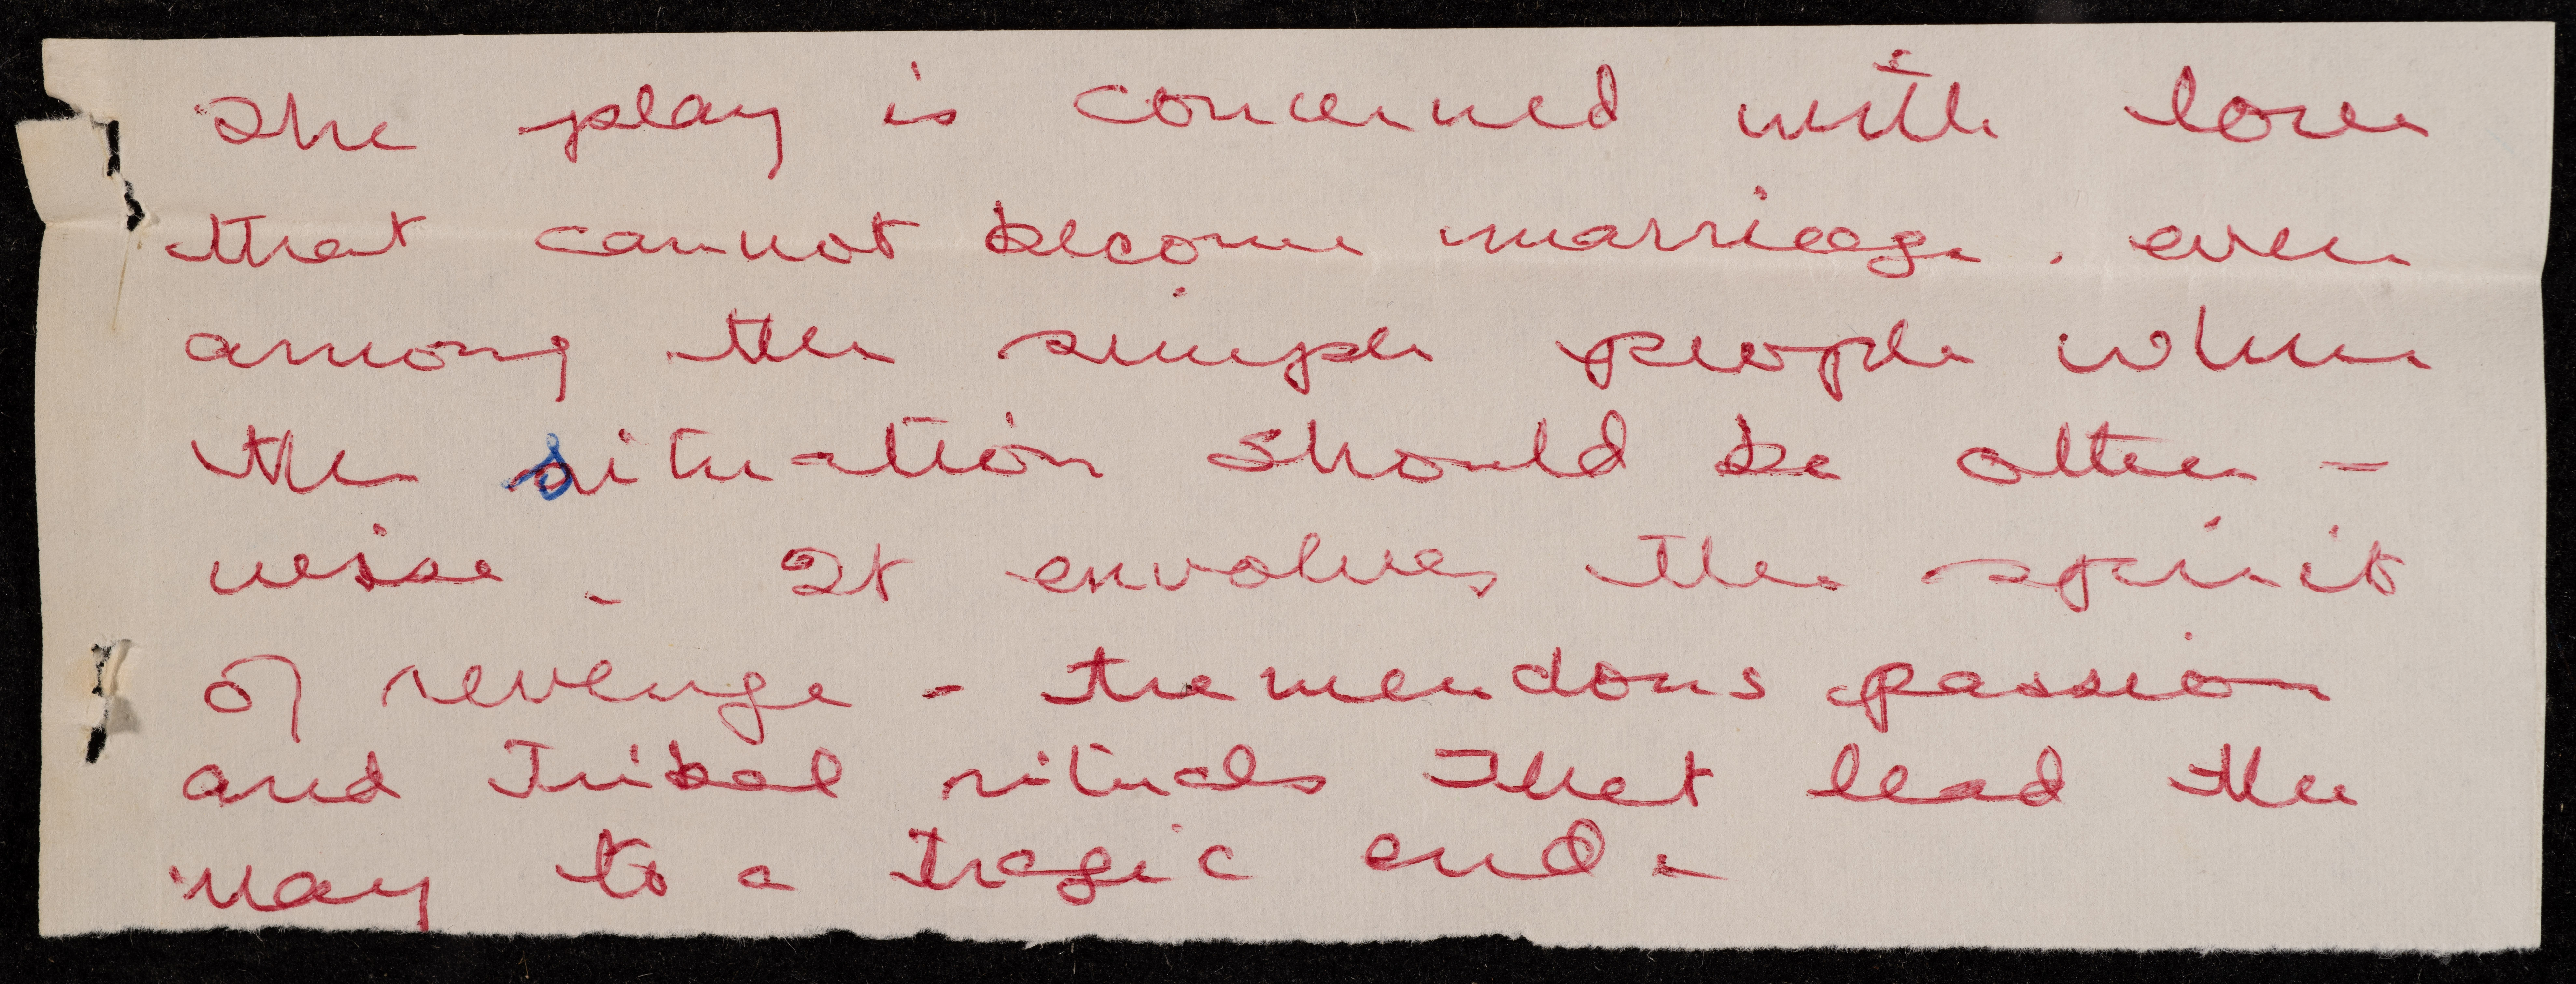 The play is concerned with love
that cannot become marriage. even
among the simple people where
the situation should be other -
wise. It envolves the spirit
of revenge - tremendous passion
and Tribal rituals that lead the
way to a tragic end.